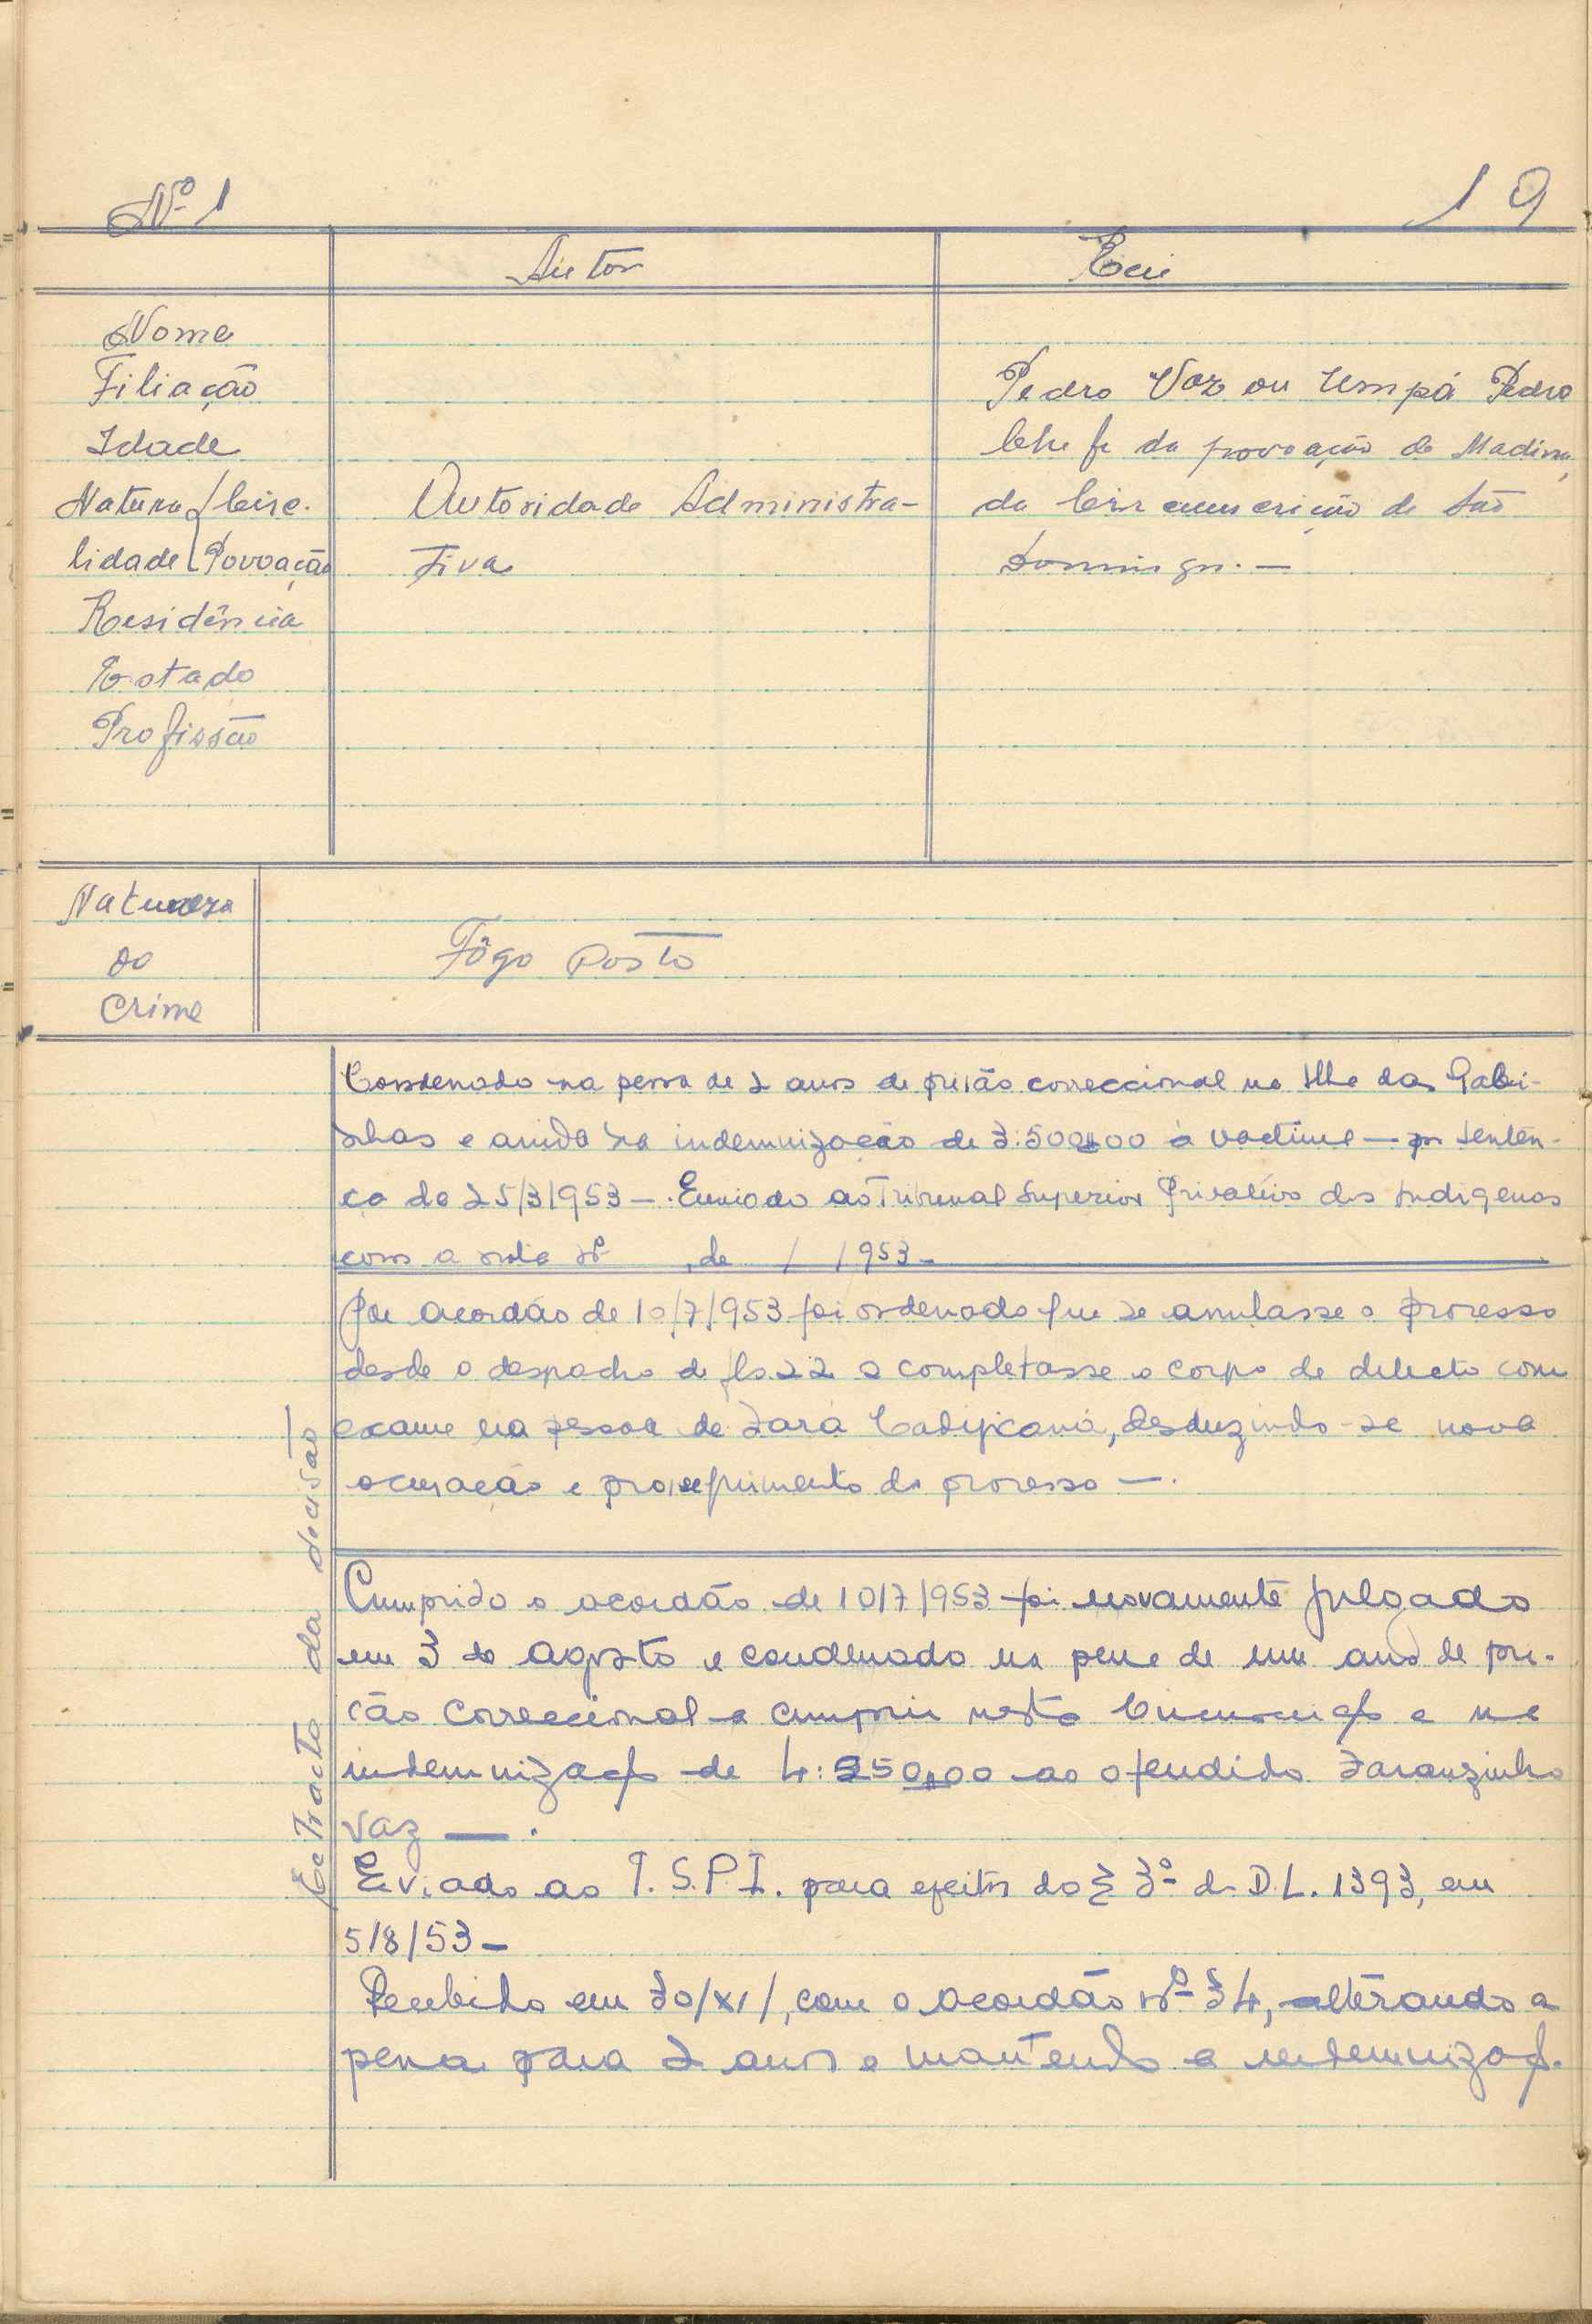 Nº 1
19
Autor
Réu
Nome
Filiação
Pedro Vaz ou Umpá Pedro
Idade
Chefe da povoação de Madina,
Natura { Circ.
Autoridade Administra-
da Circunscrição de São
lidade { Povoação
tiva
Domingos. —
Residência
Estado
Profissão
Natureza
do
Crime
Fôgo Posto
Extracto da decisão
Condenado na pena de 2 anos de prisão correccional na Ilha das Gali-
nhas e ainda na indemnização de 3:500$00 à vactima — por senten-
ça de 25/3/953 —. Enviado ao Tribunal Superior Privativo dos Indigenas
com a nota nº , de / /953 —
Por acordão de 10/7/953 foi ordenado que se anulasse o processo
desde o despacho de fls. 22 e completasse o corpo de delicto com
exame na pessoa de Zara, deduzindo-se nova
acusação e prosseguimento do processo —.
Cumprido o acordão de 10/7/953 foi novamente julgado
em 3 de Agosto e condenado na pena de um ano de pri-
são correccional a cumprir nesta e na
de 4:250$00 ao ofendido
Vaz — .
Enviado ao T.S.P.I. para efeitos do § 3º do D.L. 1393, em
5/8/53 —
Recebido em 30/XI/, com o acordão nº 34, alterando a
pena para 2 anos e mantendo a